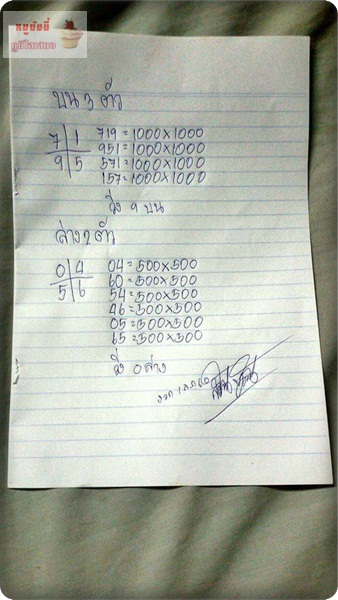 หมูยิ้มยี่
ภูมิใจเสนอ
บน 3 ตัว
7 1 719 = 1000 x 1000
9 5 951 = 1000 x 1000
571 = 1000 x 1000
157 = 1000 x 1000
วิ่ง 9 บน
ล่าง 2 ตัว
0 4 04 = 500 x 500
5 6 60 = 500 x 500
54 = 500 x 500
46 = 500 x 500
05 = 500 x 500
65 = 500 x 500
วิ่ง 0 ล่าง